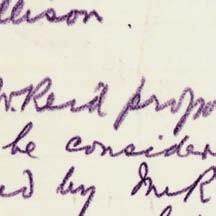 llison
Mr. Reid propo
be consider
ed by Mr R